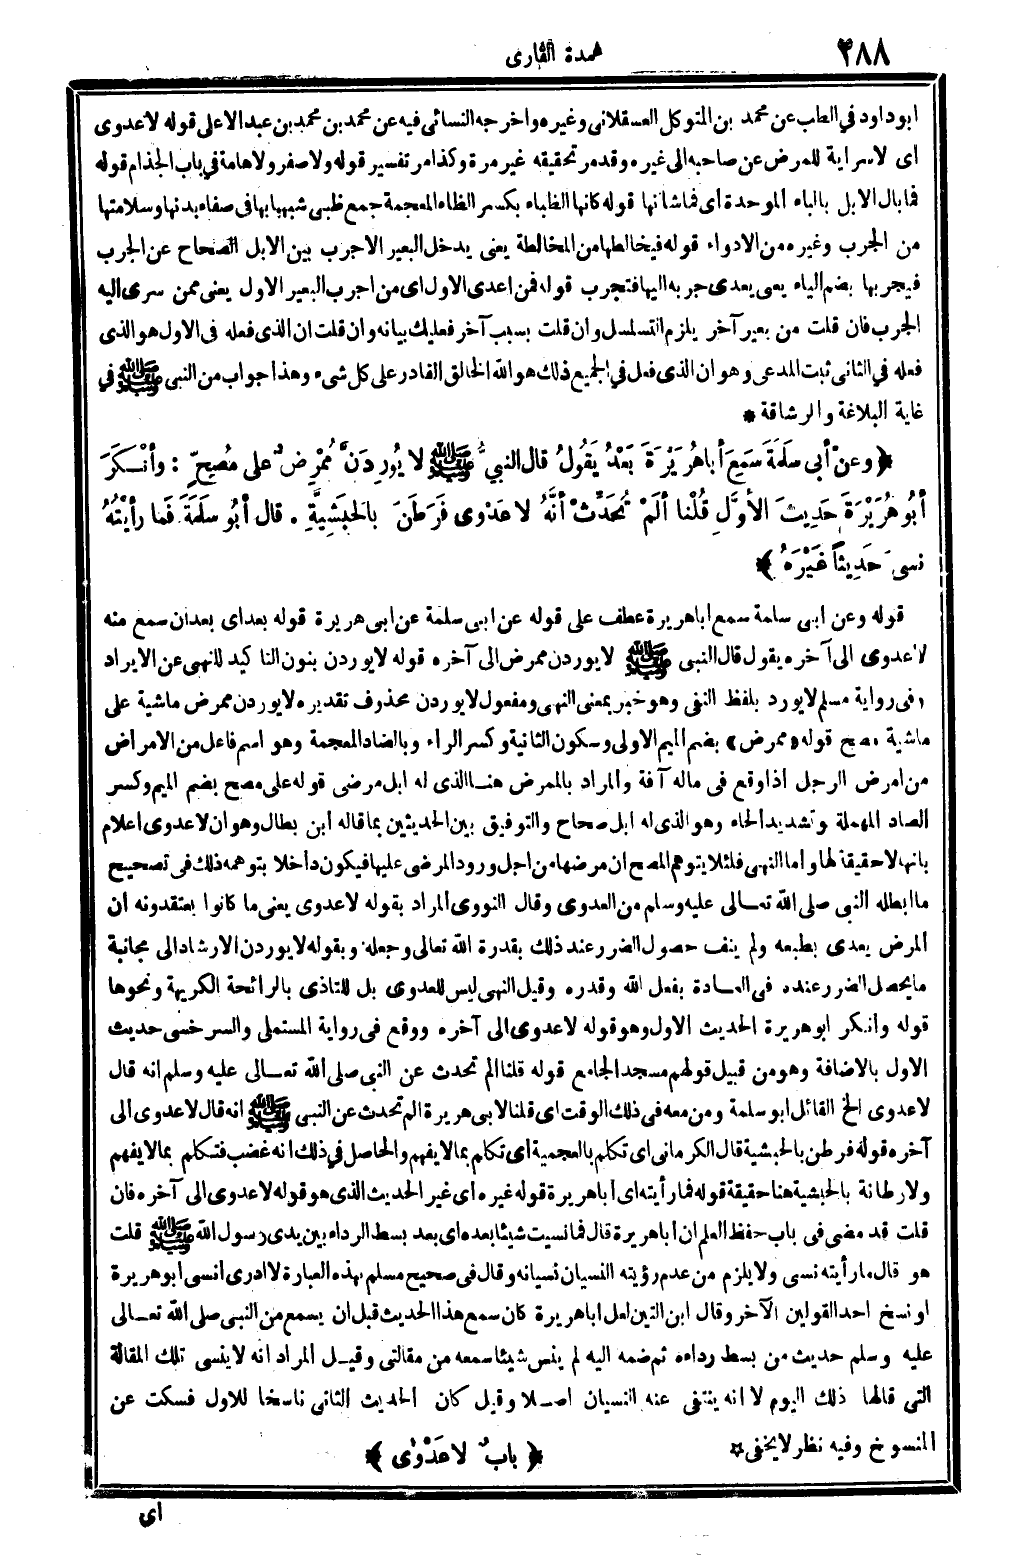 ٢٨٨
عمدة القارى
ابوداود في الطب عن محمد بن المتوكل العسقلانى وغيره واخرجه النسائى فيه عن محمد بن محمد بن عبد الاعلى قوله لاعدوى
اى لاسراية للمرض عن صاحبه الى غيره وقد مر تحقيقه غير مرة وكذا مر تفسير قوله ولا صفر ولا هامة في باب الجذام قوله
فما بال الابل بالباء الموحدة اى فما شانها قوله كانها الظباء بكسر الظاء المعجمة جمع ظبى شبهها بها فى صفاء بدنها وسلامتها
من الجرب وغيره من الادواء قوله فيخالطها من المخالطة يعنى يدخل البعير الاجرب بين الابل الصحاح عن الجرب
فيجربها بضم الياء يعى يعدى جربه اليها فتجرب قوله فمن اعدى الاول اى من اجرب البعير الاول يعنى ممن سرى اليه
الجرب فان قلت من بعير آخر يلزم التسلسل وان قلت بسبب آخر فعليك بيانه وان قلت ان الذى فعله فى الاول هو الذى
فعله في الثانى ثبت المدعى وهو ان الذى فعل في الجميع ذلك هو الله الخالق القادر على كل شىء وهذا جواب من النبى ﷺ في
غاية البلاغة والرشاقة *
﴿ وعنْ أبى سلَمَةَ سَمِعَ أباهُرَيْرَةَ بَعْدُ يَقُولُ قال النبىُّ ﷺ لا يُورِدَنَّ مُمْرِضٌ على مُصِحٍّ : وأنْكَرَ
أبُو هُرَيْرَةَ حَدِيثَ الأوَّلِ قُلْنا ألَمْ تُحَدِّثْ أنَّهُ لا عَدْوَى فَرَطَنَ بالحَبَشِيَّةِ . قال أبُو سلَمَةَ فَما رأيْتُهُ
نسىَ حَدِيثاً غَيْرَهُ ﴾
قوله وعن ابى سلمة سمع اباهريرة عطف على قوله عن ابى سلمة عن ابى هريرة قوله بعد اى بعد ان سمع منه
لاعدوى الى آخره يقول قال النبى ﷺ لايوردن ممرض الى آخره قوله لايوردن بنون التاكيد للنهى عن الايراد
وفى رواية مسلم لايورد بلفظ النفى وهو خبر بمعنى النهى ومفعول لايوردن محذوف تقديره لايوردن ممرض ماشية على
ماشية مصح قوله «ممرض» بضم الميم الاولى وسكون الثانية وكسر الراء وبالضاد المعجمة وهو اسم فاعل من الامراض
من امرض الرجل اذا وقع فى ماله آفة والمراد بالممرض هنا الذى له ابل مرضى قوله على مصح بضم الميم وكسر
الصاد المهملة وتشديد الحاء وهو الذى له ابل صحاح والتوفيق بين الحديثين بما قاله ابن بطال وهو ان لاعدوى اعلام
بانها لاحقيقة لها واما النهى فلئلا يتوهم المصح ان مرضها من اجل ورود المرضى عليها فيكون داخلا بتوهمه ذلك فى تصحيح
ما ابطله النبى صلى الله تعالى عليه وسلم من العدوى وقال النووى المراد بقوله لاعدوى يعنى ما كانوا يعتقدونه ان
المرض يعدى بطبعه ولم ينف حصول الضرر عند ذلك بقدرة الله تعالى وجعله وبقوله لايوردن الارشاد الى مجانبة
مايحصل الضرر عنده فى العادة بفعل الله وقدره وقيل النهى ليس للعدوى بل للتاذى بالرائحة الكريهة ونحوها
قوله وانكر ابوهريرة الحديث الاول وهو قوله لاعدوى الى آخره ووقع فى رواية المستملى والسرخسى حديث
الاول بالاضافة وهو من قبيل قولهم مسجد الجامع قوله قلنا الم تحدث عن النبى صلى الله تعالى عليه وسلم انه قال
لاعدوى الخ القائل ابو سلمة ومن معه فى ذلك الوقت اى قلنا لابى هريرة الم تحدث عن النبى ﷺ انه قال لاعدوى الى
آخره قوله فرطن بالحبشية قال الكرمانى اى تكلم بالعجمية اى تكلم بما لايفهم والحاصل في ذلك انه غضب فتكلم بما لايفهم
ولا رطانة بالحبشية هنا حقيقة قوله فما رأيته اى اباهريرة قوله غيره اى غير الحديث الذى هو قوله لاعدوى الى آخره فان
قلت قد مضى فى باب حفظ العلم ان اباهريرة قال فما نسيت شيئا بعده اى بعد بسط الرداء بين يدى رسول الله ﷺ قلت
هو قال ما رأيته نسى ولا يلزم من عدم رؤيته النسيان نسيانه وقال فى صحيح مسلم بهذه العبارة لا ادرى انسى ابوهريرة
او نسخ احد القولين الآخر وقال ابن التين لعل اباهريرة كان سمع هذا الحديث قبل ان يسمع من النبى صلى الله تعالى
عليه وسلم حديث من بسط رداءه ثم ضمه اليه لم ينس شيئا سمعه من مقالتى وقيل المراد انه لاينسى تلك المقالة
التى قالها ذلك اليوم لا انه ينتفى عنه النسيان اصلا وقيل كان الحديث الثانى ناسخا للاول فسكت عن
المنسوخ وفيه نظر لايخفى *
﴿ بابٌ لا عَدْوَى ﴾
اى